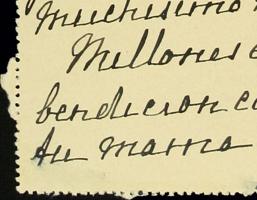 muchísimo
Millones
bendicion
tu mama